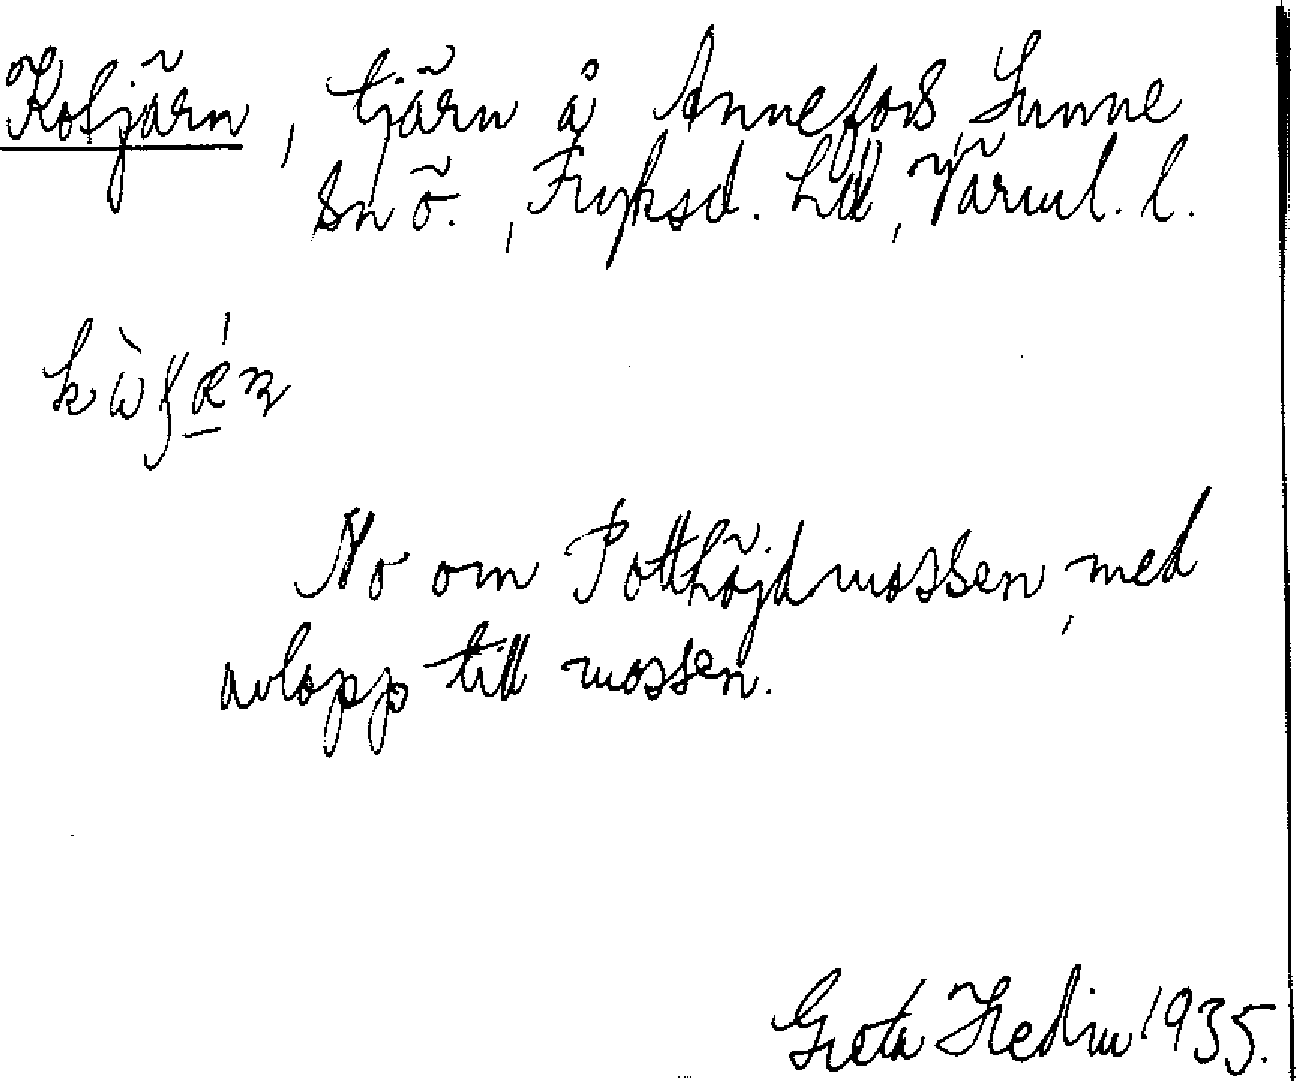 Kotjärn, tjärn å Annefors, Sunne
sn ö., Fryksd. hd, Värml. l.
No om Potthöjdmossen, med
avlopp till mossen.
Greta Hedin 1935.